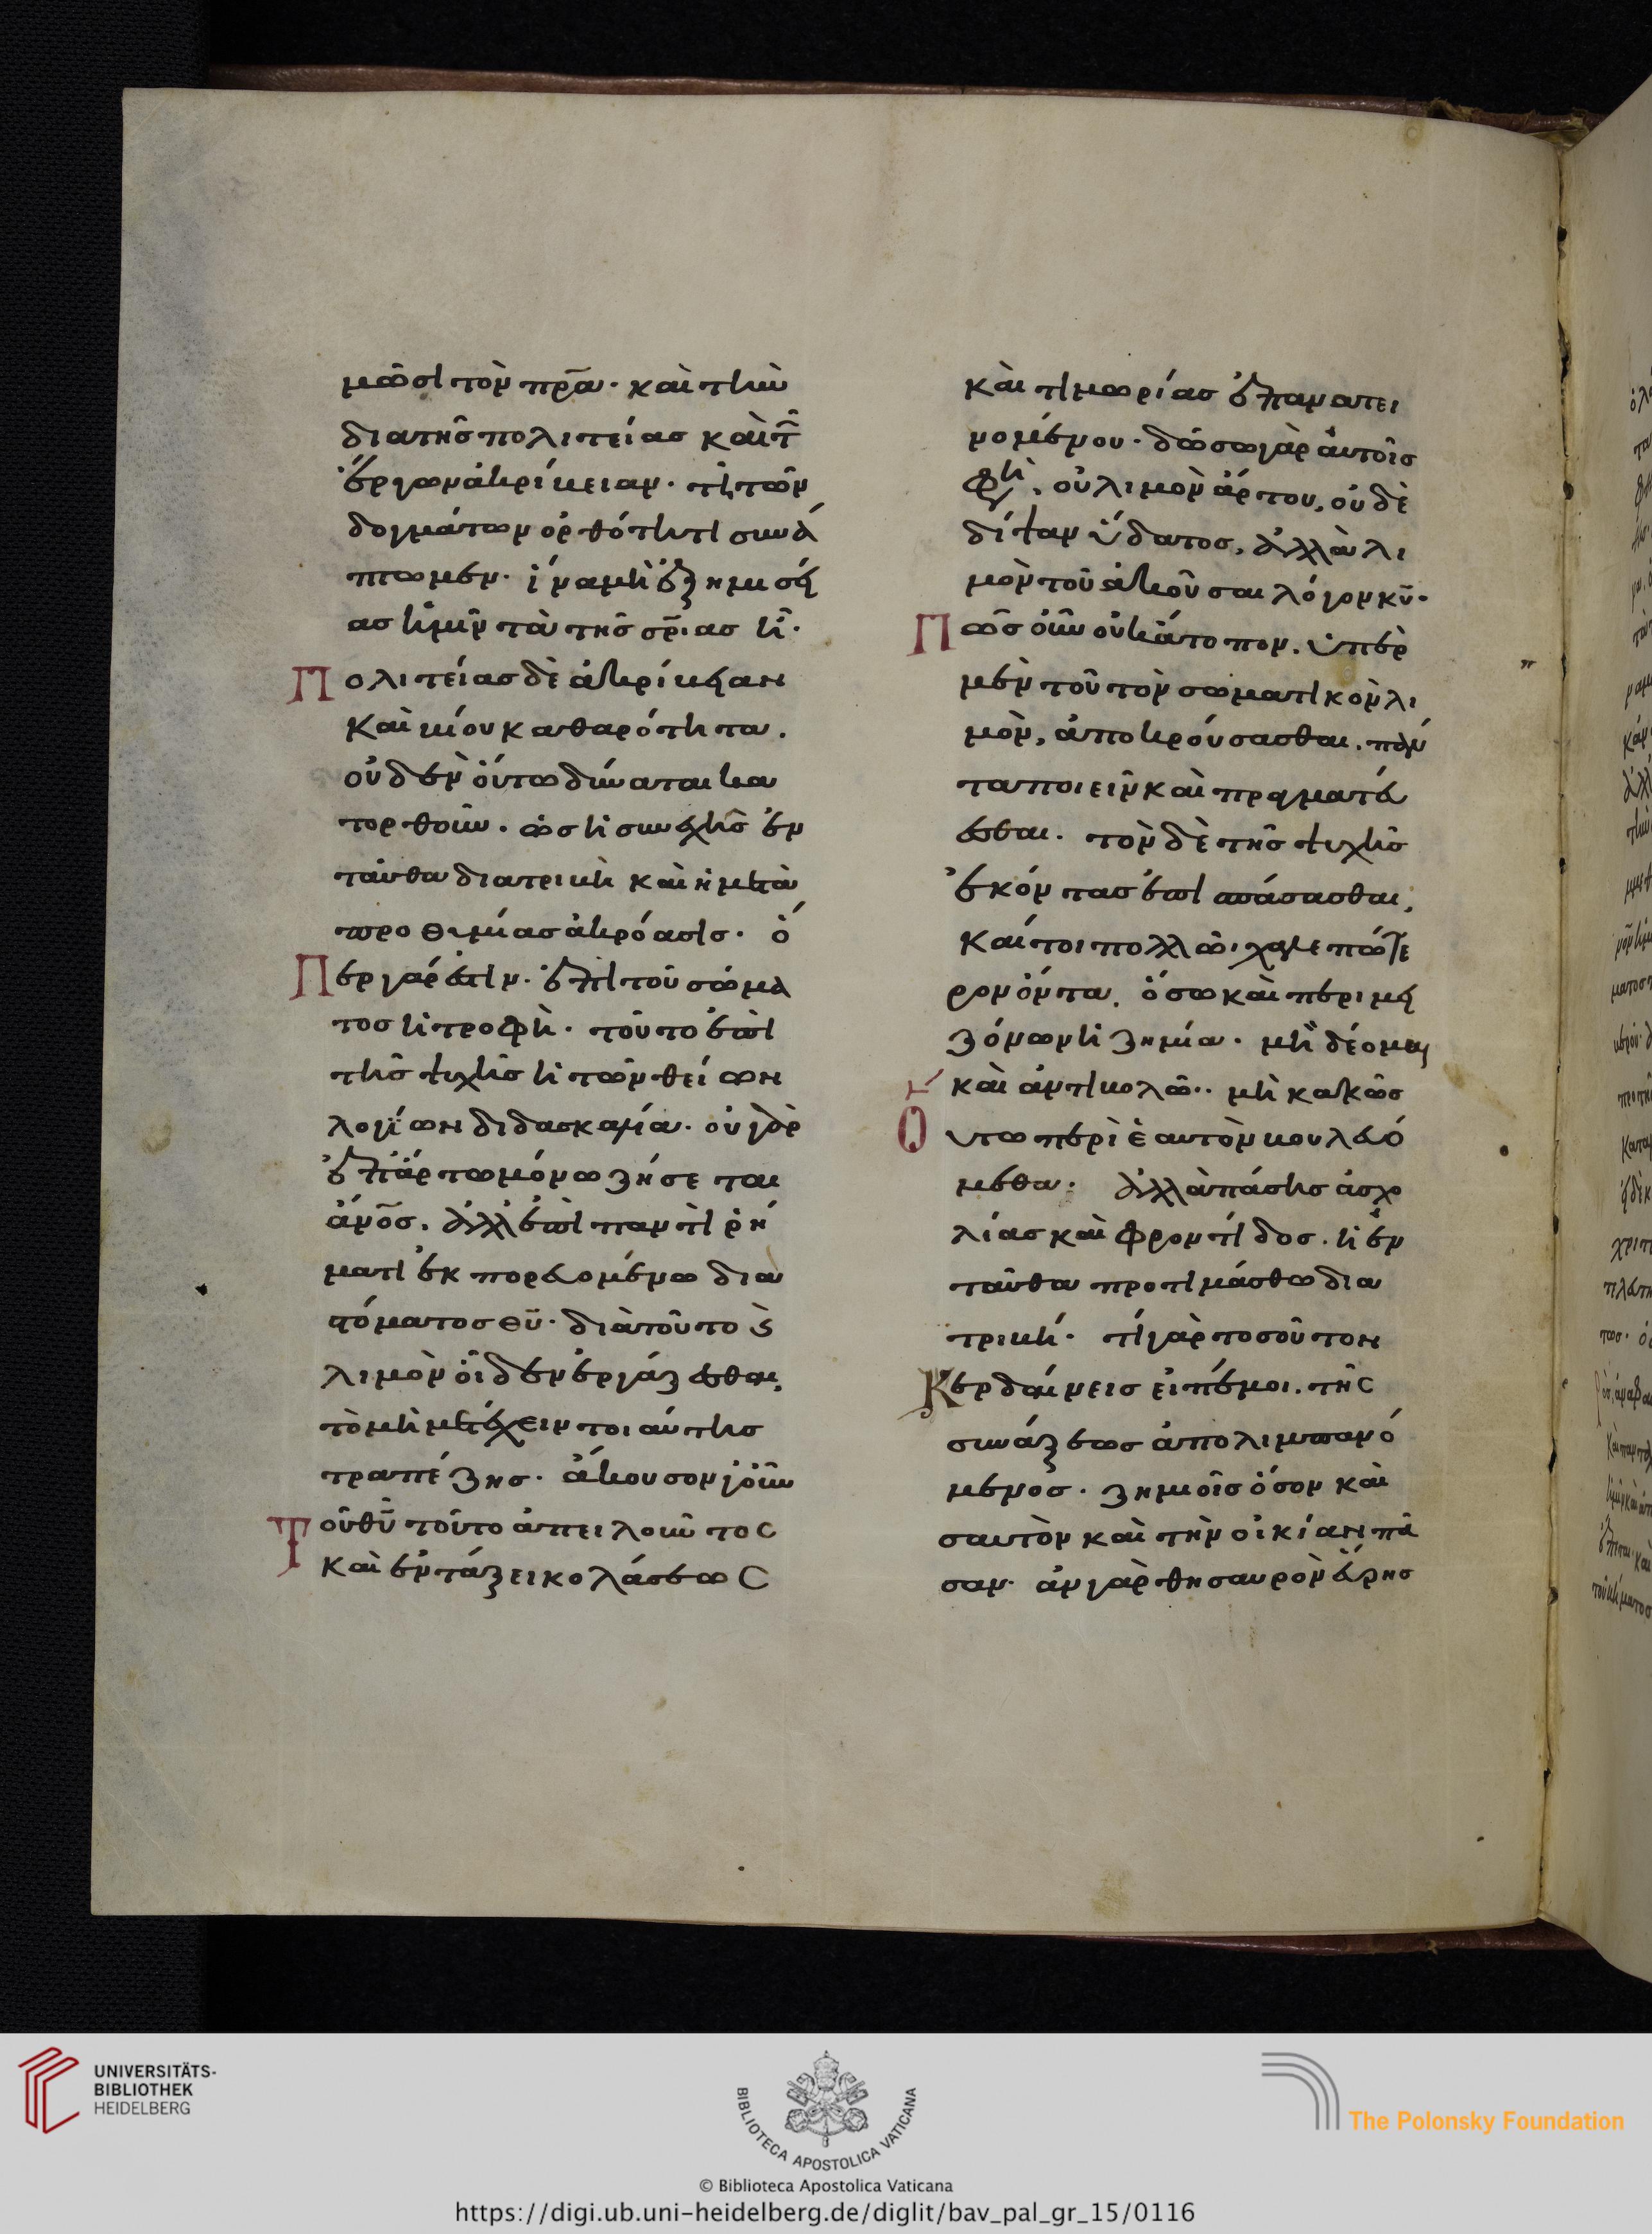 μῶσι τὸν πρ̅α· καὶ τὴν
διὰ τῆς πολιτείας καὶ τ̅
ἔργων ἀκρίβειαν· τῆ τῶν
δογμάτων ὀρθότητι συνά
πτωμεν· ἵνα μὴ ἐξ ἡμισεί
ας ἡμῖν τὰ τῆς σρ̅ιας ἦ·
Πολιτείας δὲ ἀκρίβειαν
καὶ βίου καθαρότητα.
οὐδὲν οὕτω δύναται κα
τορθοῦν. ὡς ἡ συνεχὴς ἐν
ταῦθα διατριβὴ καὶ ἡ μετὰ
προθυμίας ἀκρόασις· ὅ
Περ γάρ ἐστιν· ἐπὶ τοῦ σώμα
τος ἡ τροφὴ· τοῦτο ἐπὶ
τῆς ψυχῆς ἡ τῶν θείων
λογίων διδασκαλία· οὐ γὰρ
ἐπ' ἄρτω μόνω ζήσεται
ἄνο̅ς. ἀλλ' ἐπὶ παντὶ ῥή
ματι ἐκπορευομένω διὰ
στόματος θυ̅· διὰ τοῦτο ϗ
λιμὸν οἶδεν ἐργάζεσθαι,
τὸ μὴ μετέχειν τοιαύτης
τραπέζης· ἄκουσον γοῦν
Τοῦ θυ̅ τοῦτο ἀπειλοῦντος
καὶ ἐν τάξει κολάσεως
καὶ τιμωρίας ἐπανατει
νομένου· δώσω γὰρ αὐτοῖς
φη, οὐ λιμὸν ἄρτου, οὐδὲ
δίψαν ὕδατος, ἀλλὰ λι
μὸν τοῦ ἀκοῦσαι λόγον κυ̅·
Πῶς οὖν οὐκ ἄτοπον. ὑπὲρ
μὲν τοῦ τὸν σωματικὸν λι
μὸν, ἀποκρούσασθαι. πάν
τα ποιεῖν καὶ πραγματεύ
εσθαι. τὸν δὲ τῆς ψυχῆς
ἑκόντας ἐπισπάσασθαι,
καίτοι πολλῶ χαλεπώτε
ρον ὄντα, ὅσω καὶ περὶ μει
ζόνων ἡ ζημία· μὴ δέομαι
καὶ ἀντιβολῶ·· μὴ κακῶς
Οὕτω περὶ ἑαυτὸν βουλευό
μεθα· ἀλλὰ πάσης ἀσχο
λίας καὶ φροντίδος. ἡ ἐν
ταῦθα προτιμάσθω δια
τριβή· τί γὰρ τοσοῦτον
Κερδαίνεις εἰπέ μοι. τῆς
συνάξεως ἀπολιμπανό
μενος· ζημιοῖς ὅσον καὶ
σαυτὸν καὶ τὴν οἰκίαν πᾶ
σαν· ἂν γὰρ θησαυρὸν εὕρης
UNIVERSITÄTS-
BIBLIOTHEK
HEIDELBERG
BIBLIOTECA APOSTOLICA VATICANA
The Polonsky Foundation
© Biblioteca Apostolica Vaticana
https://digi.ub.uni-heidelberg.de/diglit/bav_pal_gr_15/0116